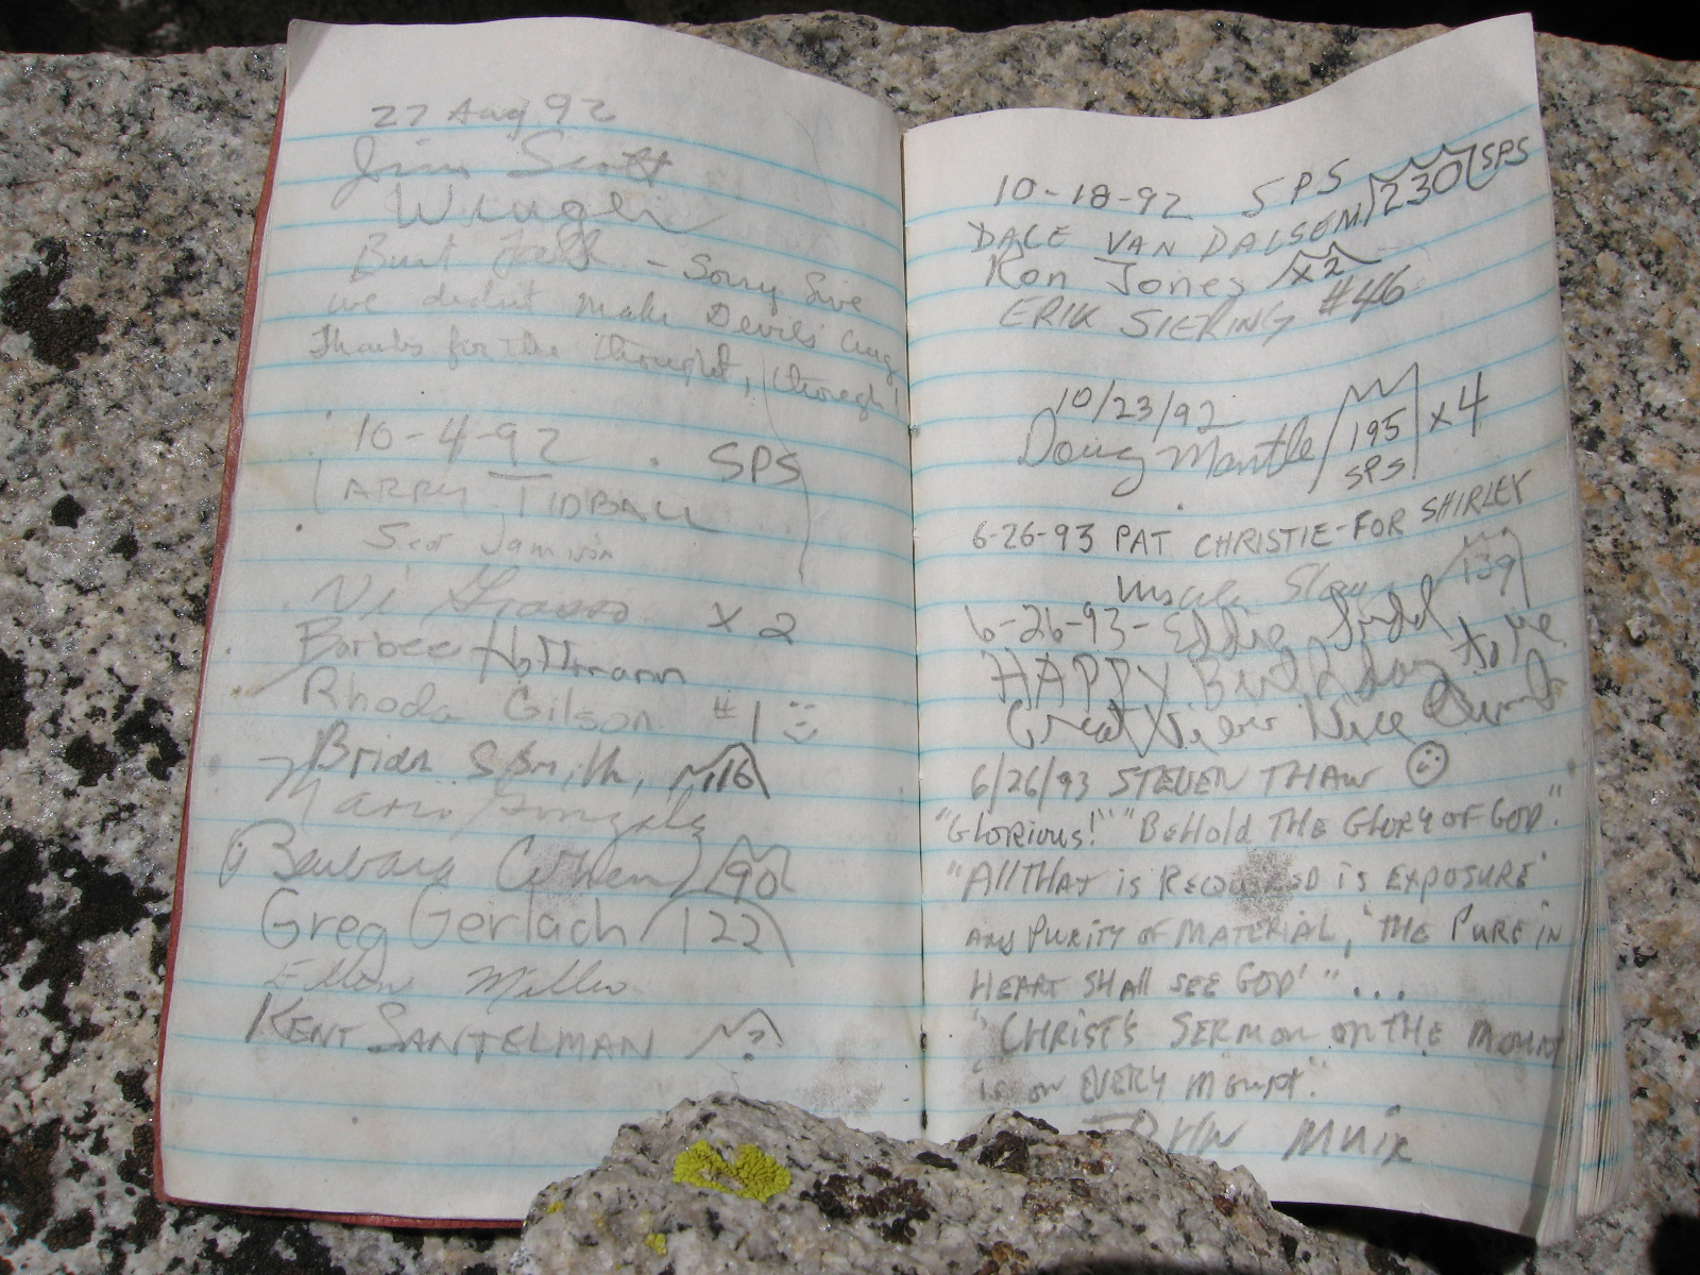 27 Aug 92
Jim Scott
Burt Falk - Sorry
we didnt make Devils Crag
Thanks for the thought, though!
10-4-92 SPS
LARRY TIDBALL
Vi Grasso x 2
Barbee Hoffmann
Rhoda Gilson #1
Brian Smith, 116
Mario Gonzalez
Barbara Cohen 90
Greg Gerlach 122
Miller
KENT SANTELMAN ?
10-18-92 SPS
DALE VAN DALSEM 230 SPS
Ron Jones x2
ERIK SIERING #46
10/23/92
Doug Mantle 195 SPS x4
6-26-93 PAT CHRISTIE-FOR SHIRLEY
139
6-26-93-Eddie
HAPPY Birthday to me
Great View Nice
6/26/93 STEVEN THAW
"GLORIOUS!" "BEHOLD THE GLORY OF GOD."
"All THAT is REQUIRED is EXPOSURE
AND PURITY OF MATERIAL, 'THE PURE IN
HEART SHAll SEE GOD'"...
"CHRIST'S SERMON ON THE MOUNT
is on EVERY MOUNT".
JOHN MUIR